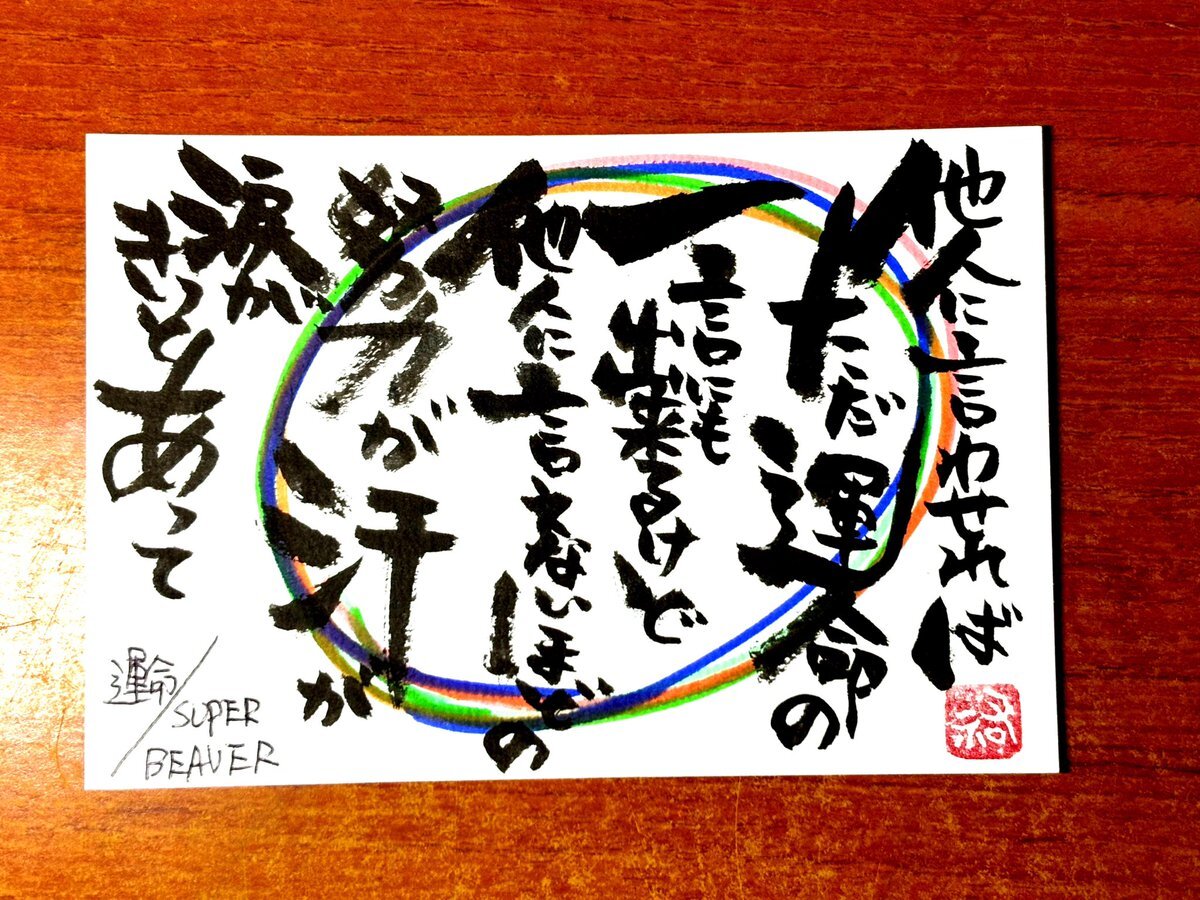 他人に言わせれば
ただ運命の
一言にも
出来るけど
他人に言えないほどの
努力が汗が
涙が
きっとあって
運命/
SUPER
BEAVER